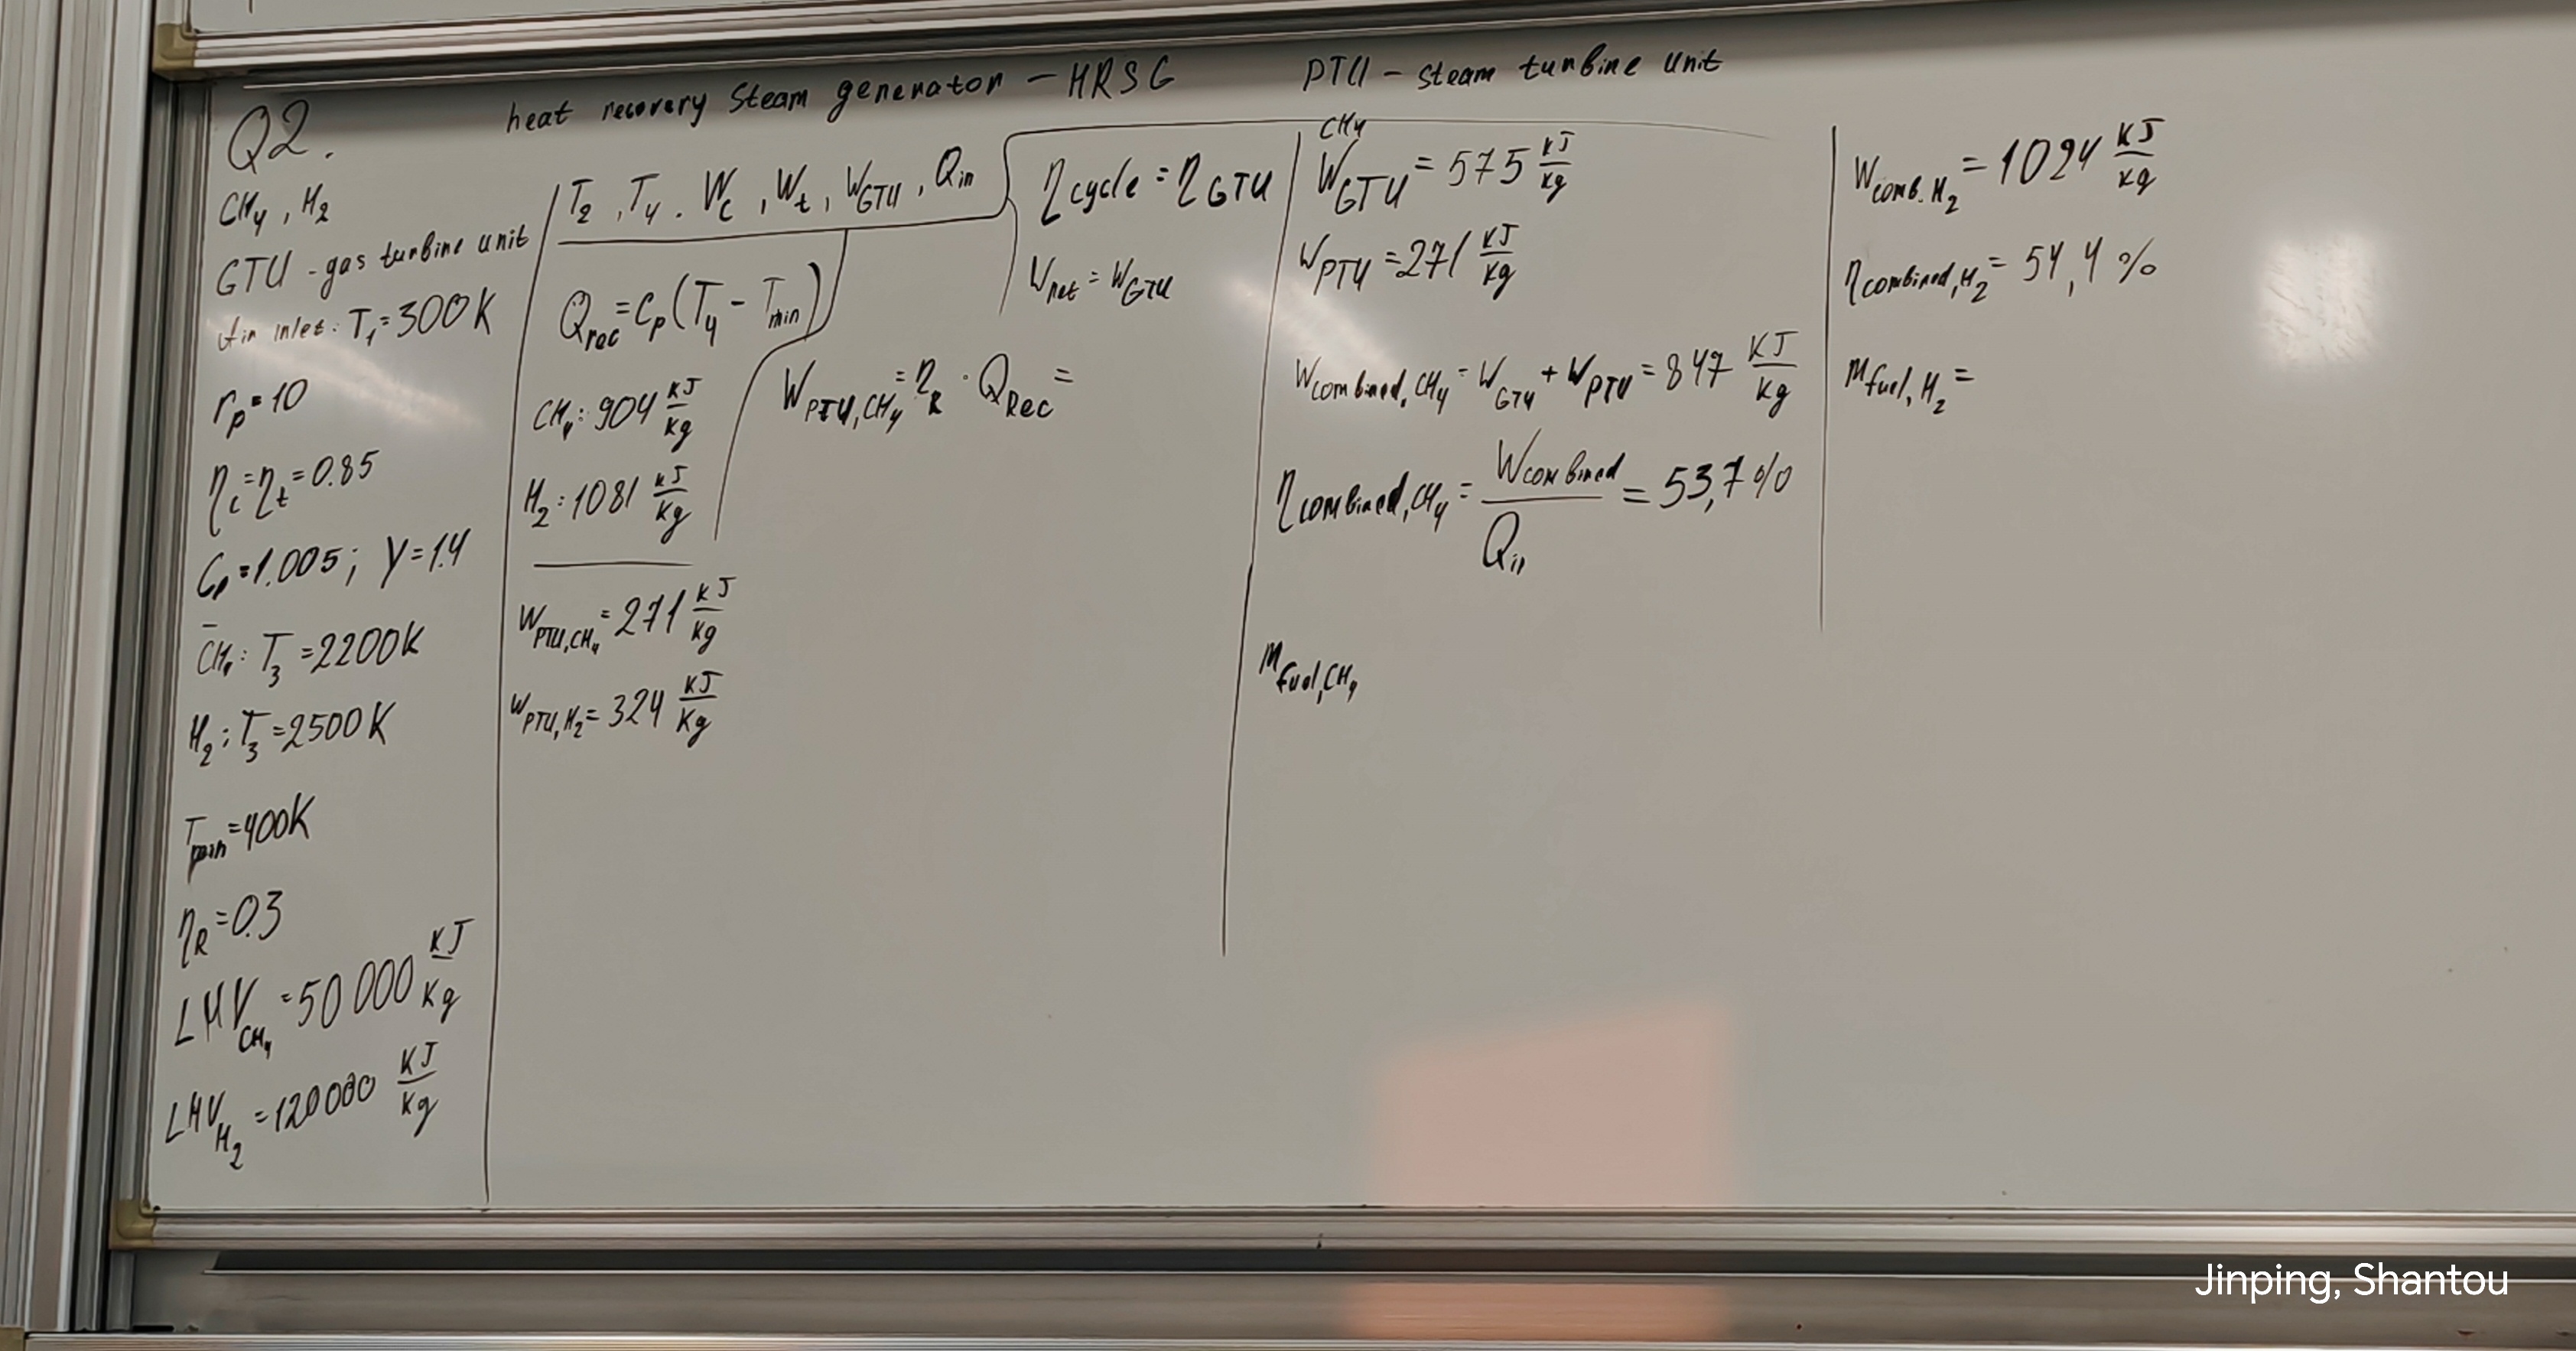 heat recovery steam generator – HRSG
PTU – steam turbine unit
Q2.
CH4, H2
GTU - gas turbine unit
Air inlet: T1 = 300K
rp = 10
ηc = ηt = 0.85
Cp = 1.005; γ = 1.4
CH4: T3 = 2200K
H2: T3 = 2500K
Tmin = 400K
ηR = 0.3
LHVCH4 = 50 000 KJ/Kg
LHVH2 = 120000 KJ/Kg
T2, T4. Wc, Wt, WGTU, Qin
Qrec = Cp(T4 - Tmin)
CH4: 904 KJ/Kg
H2: 1081 KJ/Kg
WPTU,CH4 = 271 KJ/Kg
WPTU,H2 = 324 KJ/Kg
WPTU,CH4 = ηR · QRec =
ηcycle = ηGTU
Wnet = WGTU
CH4
WGTU = 575 KJ/Kg
WPTU = 271 KJ/Kg
Wcombined,CH4 = WGTU + WPTU = 847 KJ/Kg
ηcombined,CH4 = Wcombined/Qin = 53,7%
mfuel,CH4
Wcomb.H2 = 1024 KJ/Kg
ηcombined,H2 = 54,4%
mfuel,H2 =
Jinping, Shantou